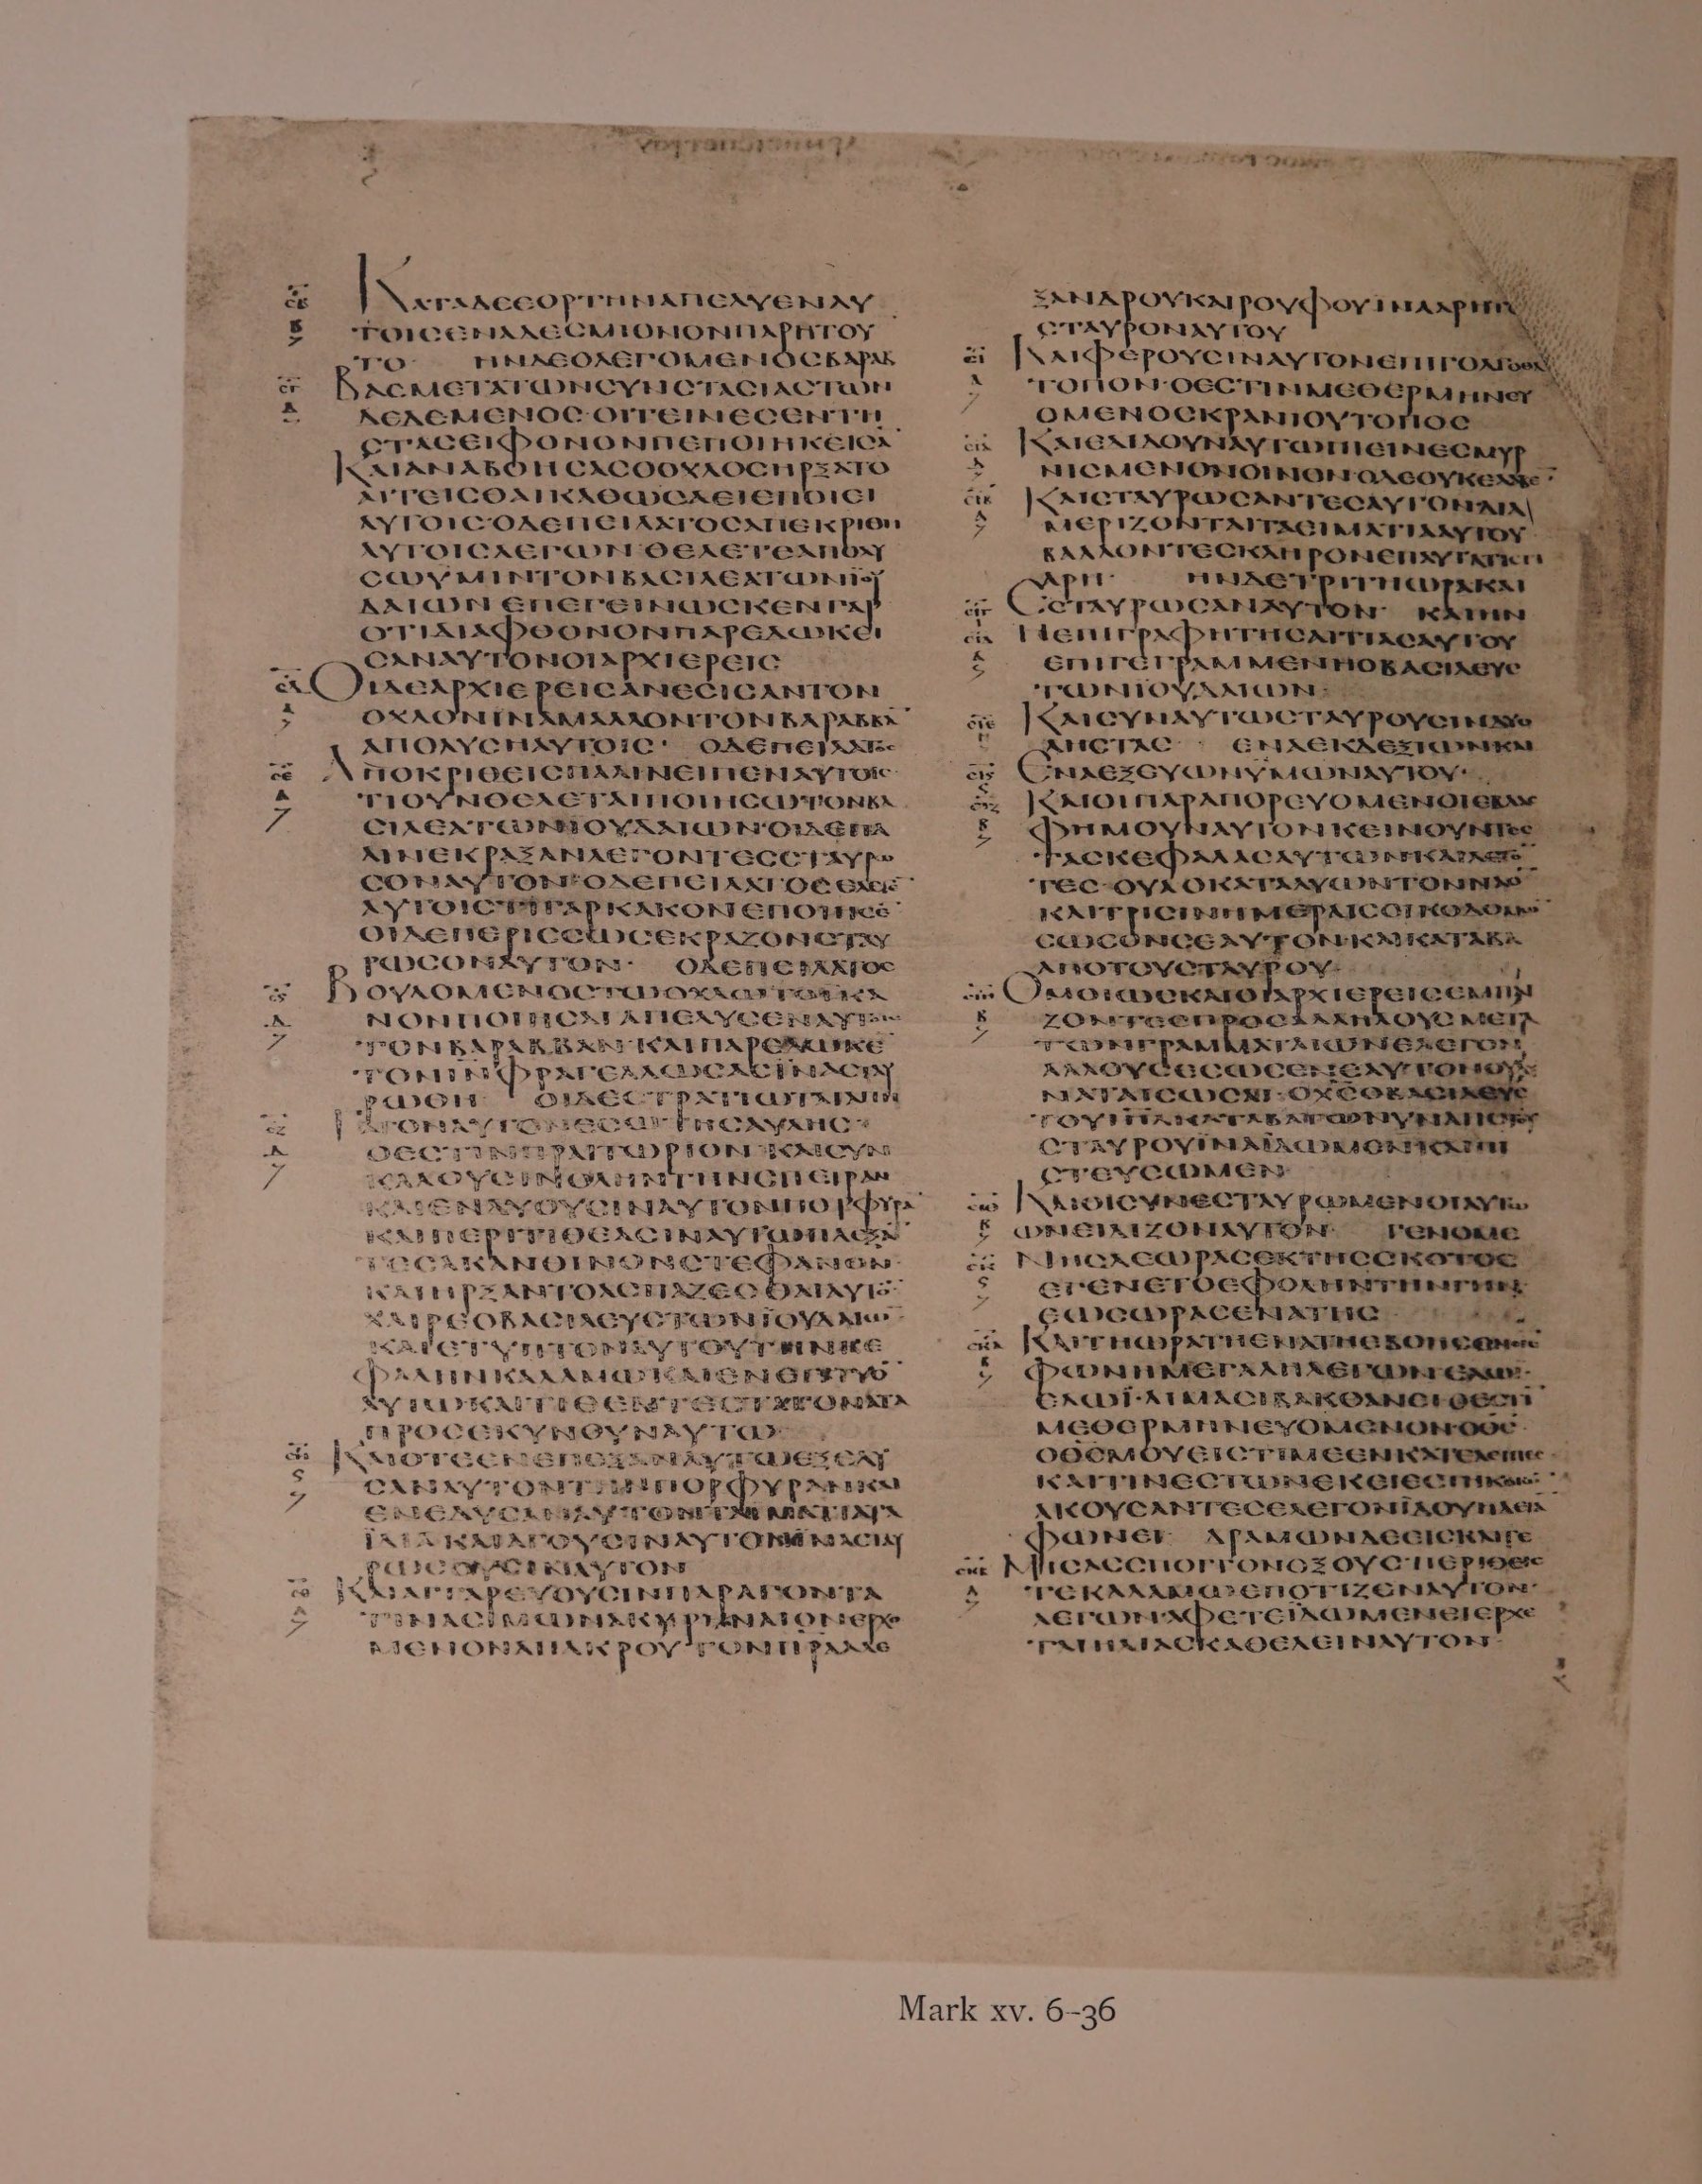 ΚΑΤΑΔΕΕΟΡΤΗΝΑΠΕΛΥΕΝΑΥ
ΤΟΙΣΕΝΑΔΕΣΜΙΟΝΟΝΠΑΡΗΤΟΥ
ΤΟ· ΗΝΔΕΟΛΕΓΟΜΕΝΟΣΒΑΡΑΒ
ΒΑΣΜΕΤΑΤΩΝΣΥΝΣΤΑΣΙΑΣΤΩΝ
ΔΕΔΕΜΕΝΟΣ·ΟΙΤΙΝΕΣΕΝΤΗ
ΣΤΑΣΕΙΦΟΝΟΝΠΕΠΟΙΗΚΕΙΣΑ
ΚΑΙΑΝΑΒΟΗΣΑΣΟΟΧΛΟΣΗΡΞΑΤΟ
ΑΙΤΕΙΣΘΑΙΚΑΘΩΣΑΕΙΕΠΟΙΕΙ
ΑΥΤΟΙΣ·ΟΔΕΠΕΙΛΑΤΟΣΑΠΕΚΡΙΘΗ
ΑΥΤΟΙΣΛΕΓΩΝ·ΘΕΛΕΤΕΑΠΟΛΥ
ΣΩΥΜΙΝΤΟΝΒΑΣΙΛΕΑΤΩΝΙΟΥ
ΔΑΙΩΝΕΠΕΓΕΙΝΩΣΚΕΝΓΑΡ
ΟΤΙΔΙΑΦΘΟΝΟΝΠΑΡΕΔΩΚΕΙ
ΣΑΝΑΥΤΟΝΟΙΑΡΧΙΕΡΕΙΣ
ΟΙΔΕΑΡΧΙΕΡΕΙΣΑΝΕΣΙΣΑΝΤΟΝ
ΟΧΛΟΝΙΝΑΜΑΛΛΟΝΤΟΝΒΑΡΑΒΒΑ
ΑΠΟΛΥΣΗΑΥΤΟΙΣ· ΟΔΕΠΕΙΛΑΤΟΣ
ΑΠΟΚΡΙΘΕΙΣΠΑΛΙΝΕΙΠΕΝΑΥΤΟΙΣ
ΤΙΟΥΝΘΕΛΕΤΑΙΠΟΙΗΣΩΤΟΝΒΑ
ΣΙΛΕΑΤΩΝΙΟΥΔΑΙΩΝ·ΟΙΔΕΠΑ
ΛΙΝΕΚΡΑΞΑΝΛΕΓΟΝΤΕΣΣΤΑΥΡΩ
ΣΟΝΑΥΤΟΝ·ΟΔΕΠΕΙΛΑΤΟΣΕΛΕΓΕ
ΑΥΤΟΙΣΤΙΓΑΡΚΑΚΟΝΕΠΟΙΗΣΕ
ΟΙΔΕΠΕΡΙΣΣΩΣΕΚΡΑΖΟΝΣΤΑΥ
ΡΩΣΟΝΑΥΤΟΝ· ΟΔΕΠΕΙΛΑΤΟΣ
ΒΟΥΛΟΜΕΝΟΣΤΩΟΧΛΩΤΟΙΚΑ
ΝΟΝΠΟΙΗΣΑΙΑΠΕΛΥΣΕΝΑΥΤΟΙΣ
ΤΟΝΒΑΡΑΒΒΑΝ·ΚΑΙΠΑΡΕΔΩΚΕ
ΤΟΝΙΝΦΡΑΓΕΛΛΩΣΑΣΙΝΑΣΤΑΥ
ΡΩΘΗ· ΟΙΔΕΣΤΡΑΤΙΩΤΑΙΑΠΗ
ΓΑΓΟΝΑΥΤΟΝΕΣΩΤΗΣΑΥΛΗΣ·
ΟΕΣΤΙΝΠΡΑΙΤΩΡΙΟΝ·ΚΑΙΣΥΝ
ΚΑΛΟΥΣΙΝΟΛΗΝΤΗΝΣΠΕΙΡΑΝ
ΚΑΙΕΝΔΥΟΥΣΙΝΑΥΤΟΝΠΟΡΦΥΡΑ
ΚΑΙΠΕΡΙΤΙΘΕΑΣΙΝΑΥΤΩΠΛΕΞΑ
ΤΕΣΑΚΑΝΘΙΝΟΝΣΤΕΦΑΝΟΝ·
ΚΑΙΗΡΞΑΝΤΟΑΣΠΑΖΕΣΘΑΙΑΥΤΟ
ΧΑΙΡΕΟΒΑΣΙΛΕΥΣΤΩΝΙΟΥΔΑΙΩ
ΚΑΙΕΤΥΠΤΟΝΑΥΤΟΥΤΗΝΚΕ
ΦΑΛΗΝΚΑΛΑΜΩΚΑΙΕΝΕΠΤΥΟ
ΑΥΤΩΚΑΙΤΙΘΕΝΤΕΣΤΑΓΟΝΑΤΑ
ΠΡΟΣΕΚΥΝΟΥΝΑΥΤΩ·
ΚΑΙΟΤΕΕΝΕΠΑΙΞΑΝΑΥΤΩΕΞΕΔΥ
ΣΑΝΑΥΤΟΝΤΗΝΠΟΡΦΥΡΑΝΚΑΙ
ΕΝΕΔΥΣΑΝΑΥΤΟΝΤΑΙΜΑΤΙΑΤΑ
ΙΔΙΑΚΑΙΑΓΟΥΣΙΝΑΥΤΟΝΙΝΑΣΤΑΥ
ΡΩΣΟΥΣΙΝΑΥΤΟΝ
ΚΑΙΑΓΓΑΡΕΥΟΥΣΙΝΠΑΡΑΓΟΝΤΑ
ΤΙΝΑΣΙΜΩΝΑΚΥΡΙΝΑΙΟΝΕΡΧΟ
ΜΕΝΟΝΑΠΑΓΡΟΥΤΟΝΠΡΑΑΛΕ
ΞΑΝΔΡΟΥΚΑΙΡΟΥΦΟΥΙΝΑΑΡΗΤΟ
ΣΤΑΥΡΟΝΑΥΤΟΥ
ΚΑΙΦΕΡΟΥΣΙΝΑΥΤΟΝΕΠΙΓΟΛΓΟΘΑΝ
ΤΟΠΟΝ·ΟΕΣΤΙΝΜΕΘΕΡΜΗΝΕΥ
ΟΜΕΝΟΣΚΡΑΝΙΟΥΤΟΠΟΣ
ΚΑΙΕΔΙΔΟΥΝΑΥΤΩΠΙΕΙΝΕΣΜΥΡ
ΝΙΣΜΕΝΟΝΟΙΝΟΝ·ΟΔΕΟΥΚΕΛΑΒΕ·
ΚΑΙΣΤΑΥΡΩΣΑΝΤΕΣΑΥΤΟΝΔΙΑ
ΜΕΡΙΖΟΝΤΑΙΤΑΕΙΜΑΤΙΑΑΥΤΟΥ
ΒΑΛΛΟΝΤΕΣΚΛΗΡΟΝΕΠΑΥΤΑΤΙΣΤΙ
ΑΡΗ· ΗΝΔΕΤΡΙΤΗΩΡΑΚΑΙ
ΕΣΤΑΥΡΩΣΑΝΑΥΤΟΝ· ΚΑΙΗΝ
ΗΕΠΙΓΡΑΦΗΤΗΣΑΙΤΙΑΣΑΥΤΟΥ
ΕΠΙΓΕΓΡΑΜΜΕΝΗΟΒΑΣΙΛΕΥΣ
ΤΩΝΙΟΥΔΑΙΩΝ·
ΚΑΙΣΥΝΑΥΤΩΣΤΑΥΡΟΥΣΙΝΔΥΟ
ΛΗΣΤΑΣ· ΕΝΑΕΚΔΕΞΙΩΝΚΑΙ
ΕΝΑΕΞΕΥΩΝΥΜΩΝΑΥΤΟΥ·
ΚΑΙΟΙΠΑΡΑΠΟΡΕΥΟΜΕΝΟΙΕΒΛΑΣ
ΦΗΜΟΥΝΑΥΤΟΝΚΕΙΝΟΥΝΤΕΣ
ΤΑΣΚΕΦΑΛΑΣΑΥΤΩΝΚΑΙΛΕΓΟ
ΤΕΣ·ΟΥΑΟΚΑΤΑΛΥΩΝΤΟΝΝΑΟ
ΚΑΙΤΡΙΣΙΝΗΜΕΡΑΙΣΟΙΚΟΔΟΜΩ
ΣΩΣΟΝΣΕΑΥΤΟΝ·ΚΑΙΚΑΤΑΒΑ
ΑΠΟΤΟΥΣΤΑΥΡΟΥ·
ΟΜΟΙΩΣΚΑΙΟΙΑΡΧΙΕΡΕΙΣΕΜΠΑΙ
ΖΟΝΤΕΣΠΡΟΣΑΛΛΗΛΟΥΣΜΕΤΑ
ΤΩΝΓΡΑΜΜΑΤΑΙΩΝΕΛΕΓΟΝ
ΑΛΛΟΥΣΕΣΩΣΕΝΕΑΥΤΟΝΟΥΔΥ
ΝΑΤΑΙΣΩΣΑΙ·ΟΧΣΟΒΑΣΙΛΕΥΣ
ΤΟΥΙΗΛΚΑΤΑΒΑΤΩΝΥΝΑΠΟΤΟΥ
ΣΤΑΥΡΟΥΙΝΑΙΔΩΜΕΝΚΑΙΠΙ
ΣΤΕΥΣΩΜΕΝ·
ΚΑΙΟΙΣΥΝΕΣΤΑΥΡΩΜΕΝΟΙΑΥΤΩ
ΩΝΕΙΔΙΖΟΝΑΥΤΟΝ· ΓΕΝΟΜΕ
ΝΗΣΔΕΩΡΑΣΕΚΤΗΣΣΚΟΤΟΣ
ΕΓΕΝΕΤΟΕΦΟΛΗΝΤΗΝΓΗΝ
ΕΩΣΩΡΑΣΕΝΑΤΗΣ·
ΚΑΙΤΗΩΡΑΤΗΕΝΑΤΗΕΒΟΗΣΕΝΟΙΣ
ΦΩΝΗΜΕΓΑΛΗΛΕΓΩΝΕΛΩΙ·
ΕΛΩΙ·ΛΙΜΑΣΙΒΑΚΘΑΝΕΙ·ΟΕΣΤΙ
ΜΕΘΕΡΜΗΝΕΥΟΜΕΝΟΝ·ΟΘΣ·
ΟΘΣΜΟΥΕΙΣΤΙΜΕΕΝΚΑΤΕΛΕΙΠΕΣ
ΚΑΙΤΙΝΕΣΤΩΝΕΚΕΙΕΣΤΗΚΟΤΩ
ΑΚΟΥΣΑΝΤΕΣΕΛΕΓΟΝΙΔΟΥΗΛΕΙΑ
ΦΩΝΕΙ· ΔΡΑΜΩΝΔΕΕΙΣΚΑΙΓΕ
ΜΙΣΑΣΣΠΟΓΓΟΝΟΞΟΥΣ·ΠΕΡΙΘΕΙΣ
ΤΕΚΑΛΑΜΩ·ΕΠΟΤΙΖΕΝΑΥΤΟΝ·
ΛΕΓΩΝΑΦΕΤΕΙΔΩΜΕΝΕΙΕΡΧΕ
ΤΑΙΗΛΙΑΣΚΑΘΕΛΕΙΝΑΥΤΟΝ·
Mark xv. 6-36